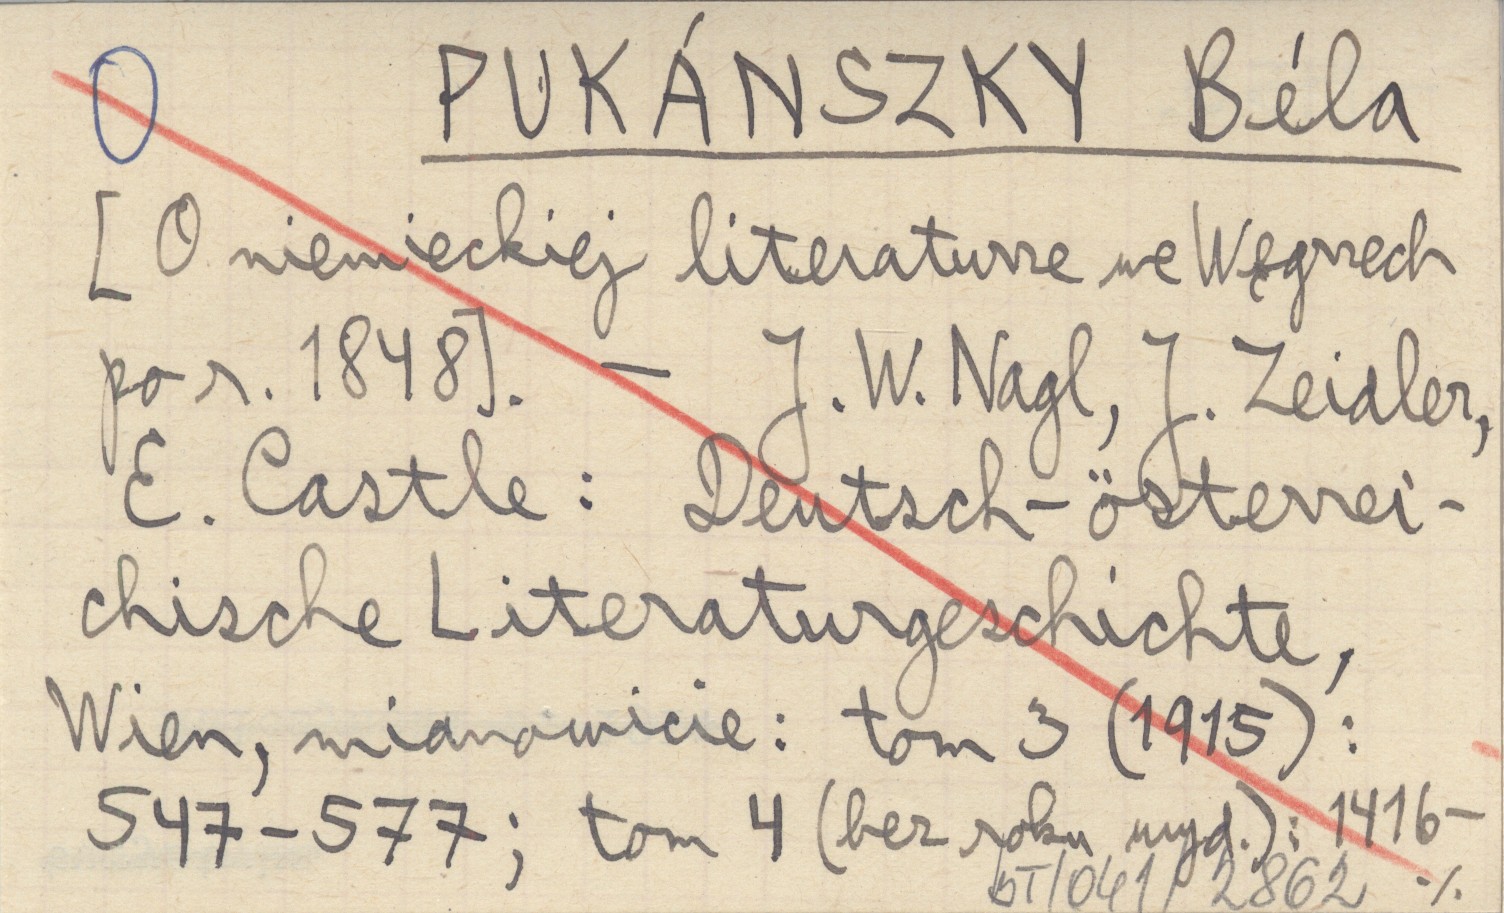 O PUKÁNSZKY Béla
[O niemieckiej literaturze we Węgrzech
po r. 1848]. — J. W. Nagl, J. Zeidler,
E. Castle: Deutsch-österrei-
chische Literaturgeschichte,
Wien, mianowicie: tom 3 (1915):
547-577; tom 4 (bez roku wyd.): 1416-
bT/041/2862 ./.